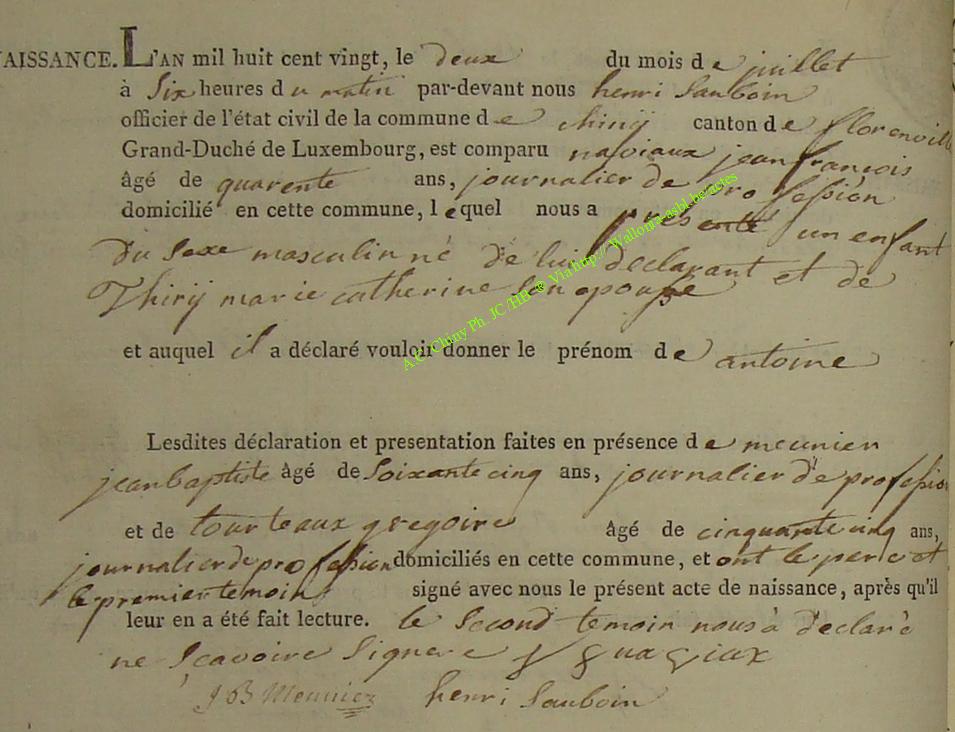 NAISSANCE. L'AN mil huit cent vingt, le deux du mois de juillet
à Six heures du matin par-devant nous henri Sauboin
officier de l'état civil de la commune de chinÿ canton de florenville
Grand-Duché de Luxembourg, est comparu naviaux jean françois
âgé de quarente ans, journalier de profession
domicilié en cette commune, lequel nous a présenté un enfant
Du Sexe masculin né De lui declarant et de
Thirÿ marie catherine Son epouse
et auquel il a déclaré vouloir donner le prénom de antoine
Lesdites déclaration et presentation faites en présence de meunier
jean baptiste âgé de Soixante cinq ans, journalier de profession
et de tourteaux gregoire âgé de cinquante cinq ans,
journalier de profession domiciliés en cette commune, et ont le pere et
le premier temoin signé avec nous le présent acte de naissance, après qu'il
leur en a été fait lecture. le Second temoin nous à declaré
ne Scavoire Signere
JB Meunier henri Sauboin
A.C. Chiny Ph. JC HB & Via http://Wallonia-asbl.be/actes